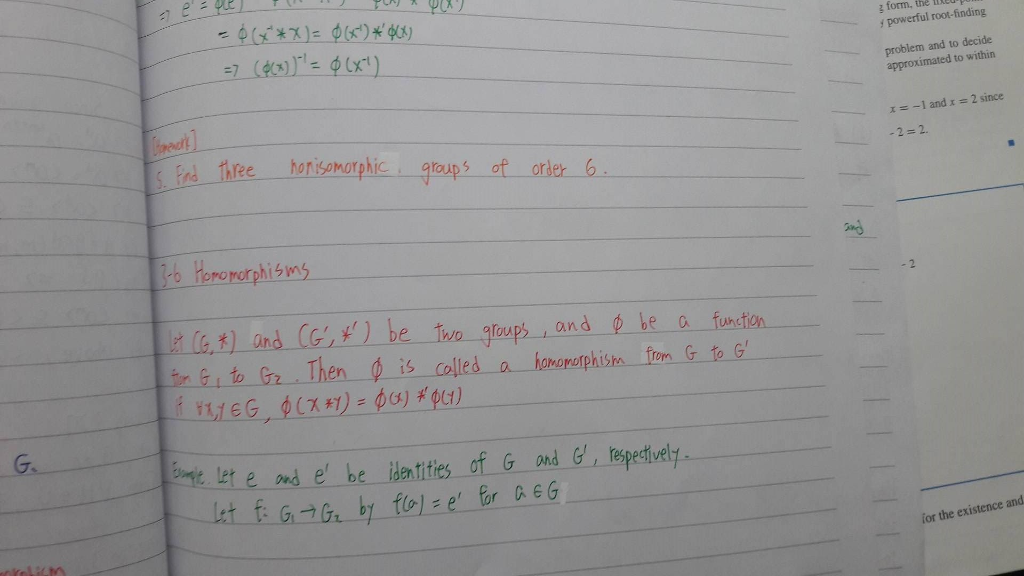 => e' = φ(e)
= φ(x⁻¹*x) = φ(x⁻¹)*'φ(x)
=> (φ(x))⁻¹ = φ(x⁻¹)
[Homework]
5. Find three nonisomorphic groups of order 6.
3-6 Homomorphisms
Let (G,*) and (G',*') be two groups, and φ be a function
from G₁ to G₂. Then φ is called a homomorphism from G to G'
if ∀x,y∈G, φ(x*y) = φ(x)*'φ(y)
Example. Let e and e' be identities of G and G', respectively.
Let f: G₁→G₂ by f(a) = e' for a∈G
G.
and
g form, the
powerful root-finding
problem and to decide
approximated to within
x = −1 and x = 2 since
- 2 = 2.
- 2
for the existence and